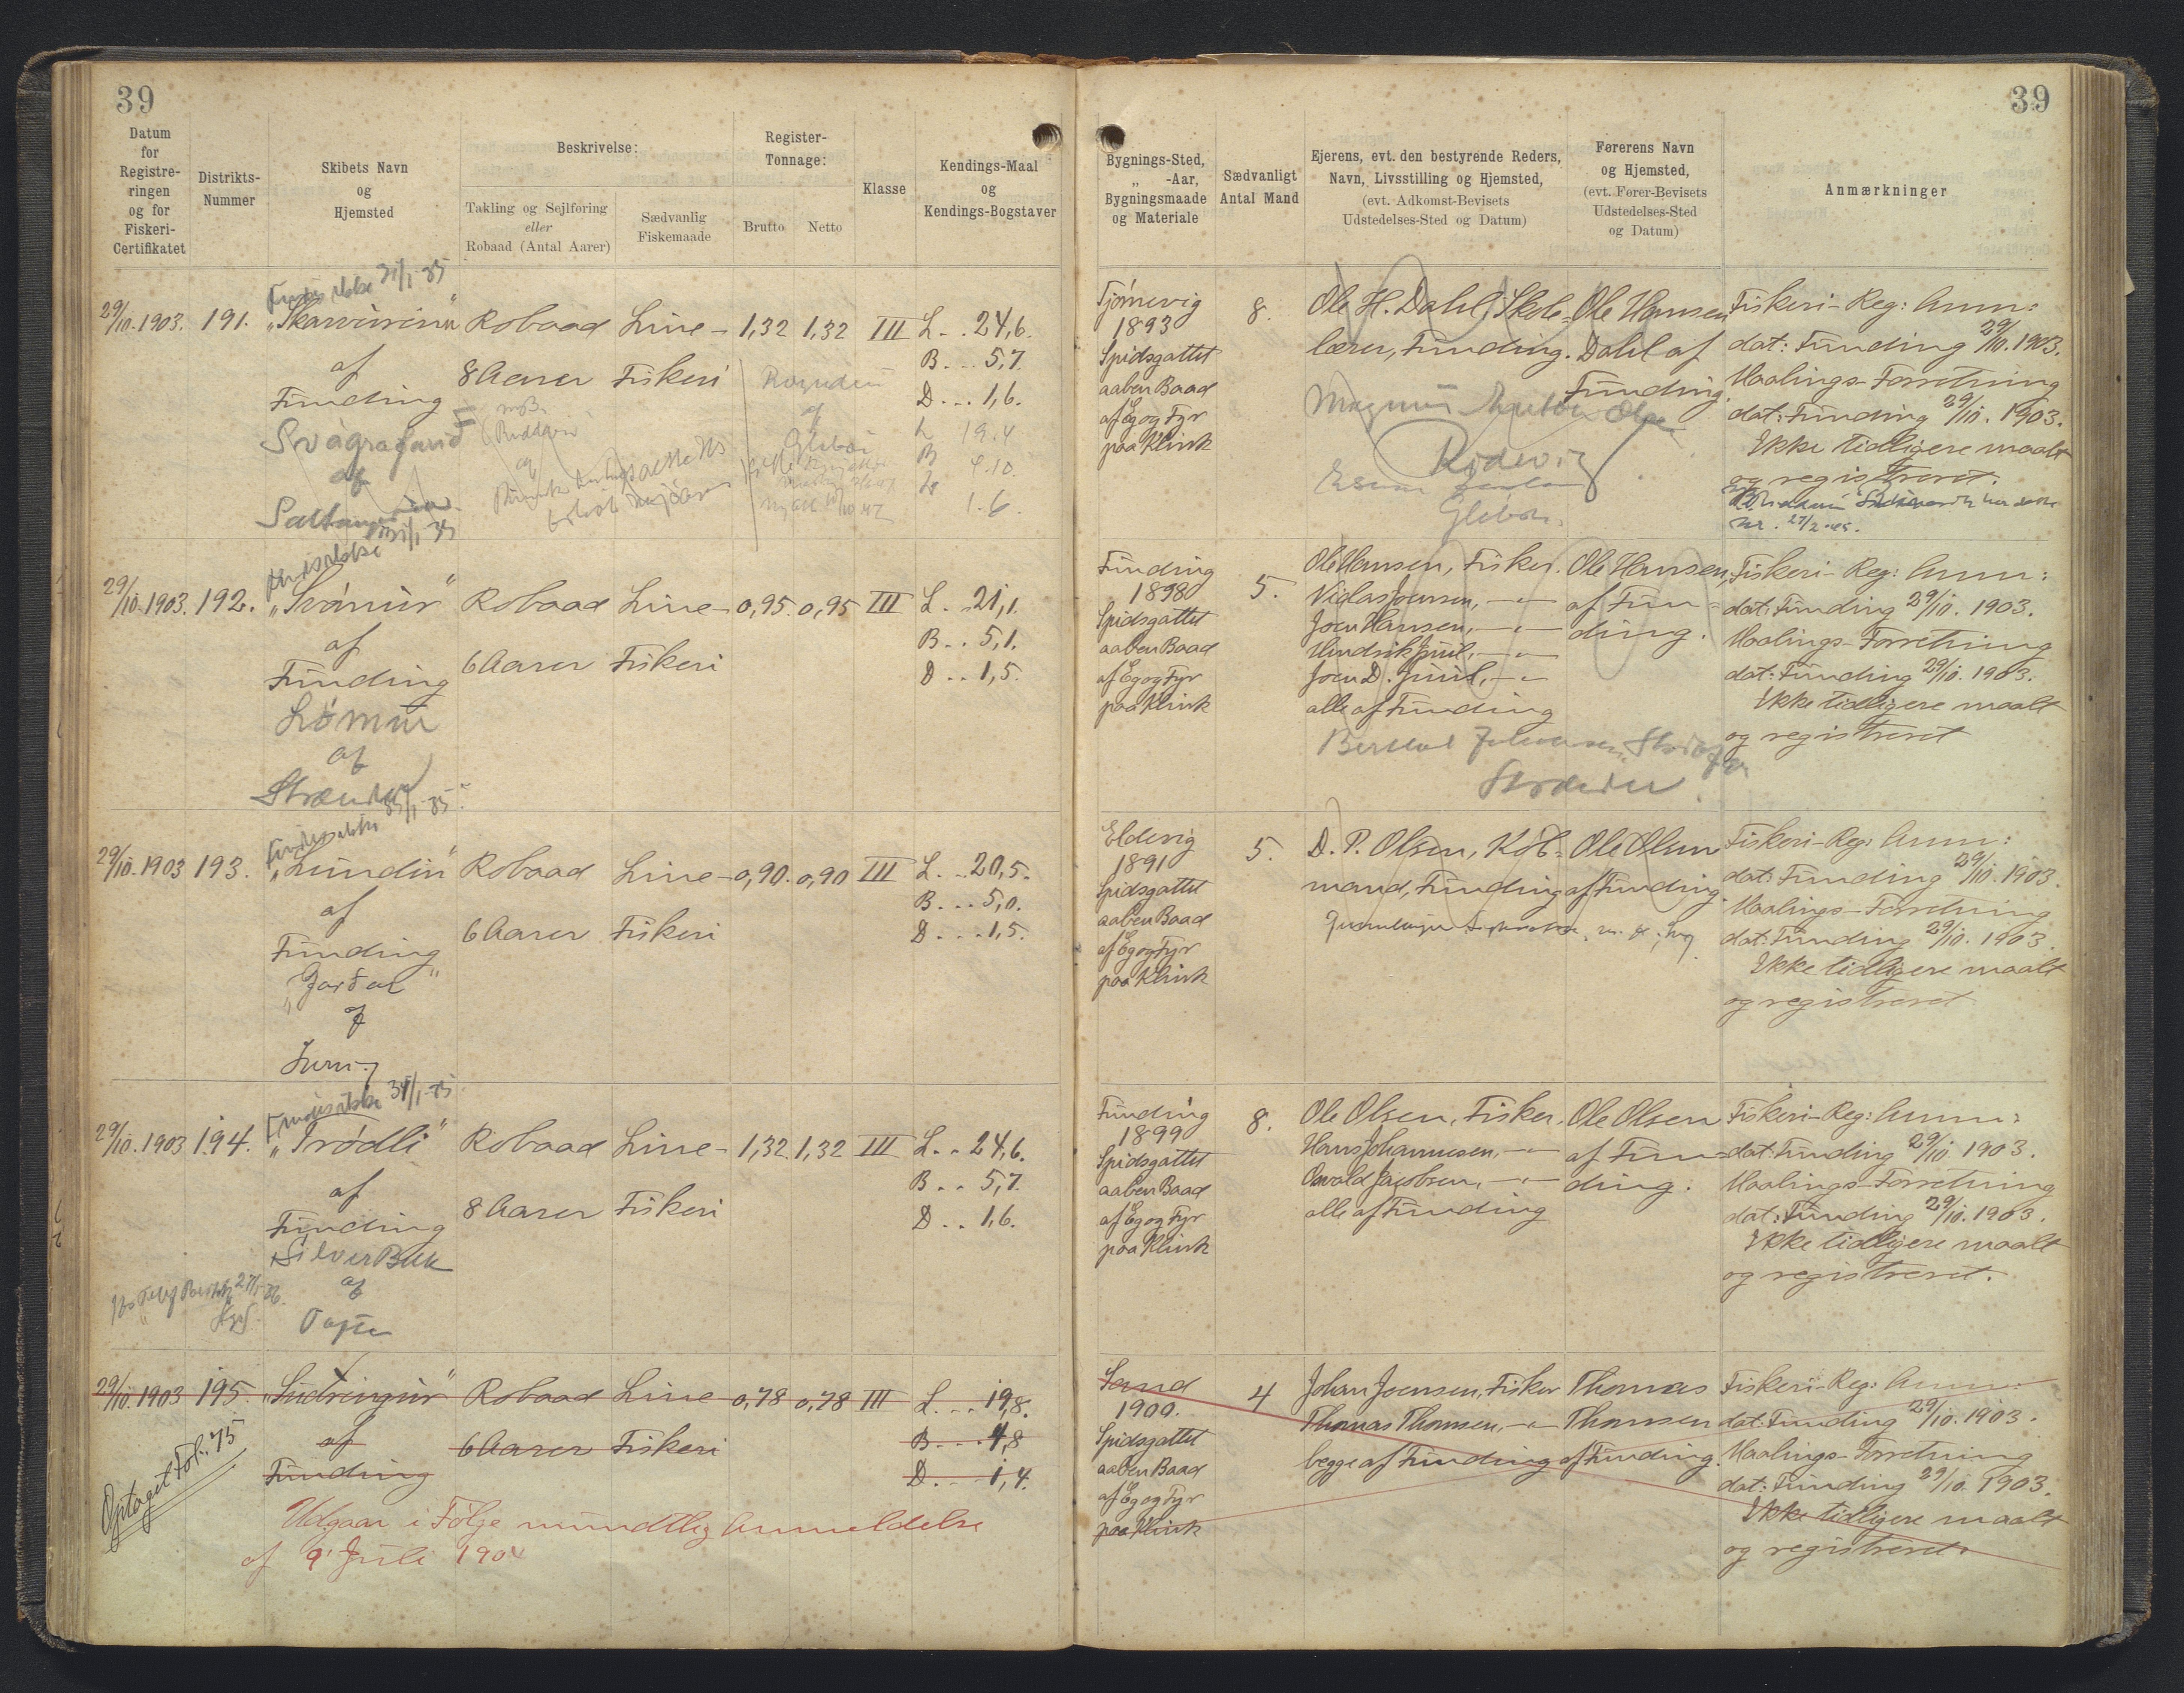 39
39
Datum
for
Registre-
ringen
og for
Fiskeri-
Certifikatet
Distrikts-
Nummer
Skibets Navn
og
Hjemsted
Beskrivelse:
Takling og Sejlføring
eller
Robaad (Antal Aarer)
Sædvanlig
Fiskemaade
Register-
Tonnage:
Brutto Netto
Klasse
Kendings-Maal
og
Kendings-Bogstaver
Bygnings-Sted,
„ -Aar,
Bygningsmaade
og Materiale
Sædvanligt
Antal Mand
Ejerens, evt. den bestyrende Reders,
Navn, Livsstilling og Hjemsted,
(evt. Adkomst-Bevisets
Udstedelses-Sted og Datum)
Førerens Navn
og Hjemsted,
(evt. Fører-Bevisets
Udstedelses-Sted
og Datum)
Anmærkninger
Findes ikke 31/1-35
29/10.1903. 191. Robaad Line- 1,32 1,32 III L.. 24,6.
af 8 Aarer Fiskeri B... 5,7.
Funding D... 1,6.
Svágrafarið
af
L 19.4
B 4.10
1.6
Tjørnevig
1893
Spidsgattet
aaben Baad
af Eg og Fyr
paa Klink
8.
Ole H. Dahl, Skole-
lærer, Funding.
Magnus
Glibøe
Ole Hansen
Dahl af
Funding.
Fiskeri-Reg: Anm:
dat: Funding 29/10.1903.
Maalings-Forretning
dat: Funding 29/10.1903.
Ikke tidligere maalt
og registreret.
Nr. 27/2-45.
Findes ikke 31/1-35
29/10.1903. 192. „Svanur“ Robaad Line- 0,95. 0,95 III L.. 21,1.
af 6 Aarer Fiskeri B.. 5,1.
Funding D.. 1,5.
Lómur
af
Strænder
Funding
1898
Spidsgattet
aaben Baad
af Eg og Fyr
paa Klink
5.
Ole Hansen, Fisker.
Niclas Joensen, -"-
Joen Hansen, -"-
Hendrik Juul, -"-
Joen D. Juul, -"-
alle af Funding
Ole Hansen,
af Fun-
ding.
Fiskeri-Reg: Anm:
dat: Funding 29/10.1903.
Maalings-Forretning
dat: Funding 29/10.1903.
Ikke tidligere maalt
og registreret
Findes ikke 31/1-35
29/10.1903 193. „Lundin“ Robaad Line- 0,90. 0,90 III L... 20,5.
af 6 Aarer Fiskeri B... 5,0.
Funding D... 1,5.
af
Eldevig
1891
Spidsgattet
aaben Baad
af Eg og Fyr
paa Klink
5.
D. P. Olsen, Køb-
mand, Funding
Ole Olsen
af Funding.
Fiskeri-Reg: Anm:
dat: Funding 29/10.1903.
Maalings-Forretning
dat: Funding 29/10.1903.
Ikke tidligere maalt
og registreret
Findes ikke 31/1-35
29/10.1903 194. „Trødli“ Robaad Line- 1,32. 1,32 III L.. 24,6.
af 8 Aarer Fiskeri B.. 5,7.
Funding D.. 1,6.
af
Funding
1899
Spidsgattet
aaben Baad
af Eg og Fyr
paa Klink
8.
Ole Olsen, Fisker.
Hans Johannesen, -"-
Osvald Jacobsen, -"-
alle af Funding
Ole Olsen
af Fun-
ding.
Fiskeri-Reg: Anm:
dat: Funding 29/10.1903.
Maalings-Forretning
dat: Funding 29/10.1903.
Ikke tidligere maalt
og registreret.
29/10.1903 195. „Sudringur“ Robaad Line- 0,78 0,78 III L... 19,8.
af 6 Aarer Fiskeri B... 4,8
Funding D... 1,4.
Optaget Fol: 75
Udgaar i Følge mundtlig Anmeldelse
af 9' Juli 190
Sand
1900.
Spidsgattet
aaben Baad
af Eg og Fyr
paa Klink
4
Johan Joensen, Fisker
Thomas Thomsen, -"-
begge af Funding
Thomas
Thomsen
af Funding.
Fiskeri-Reg: Anm:
dat: Funding 29/10.1903.
Maalings-Forretning
dat: Funding 29/10.1903.
Ikke tidligere maalt
og registreret.